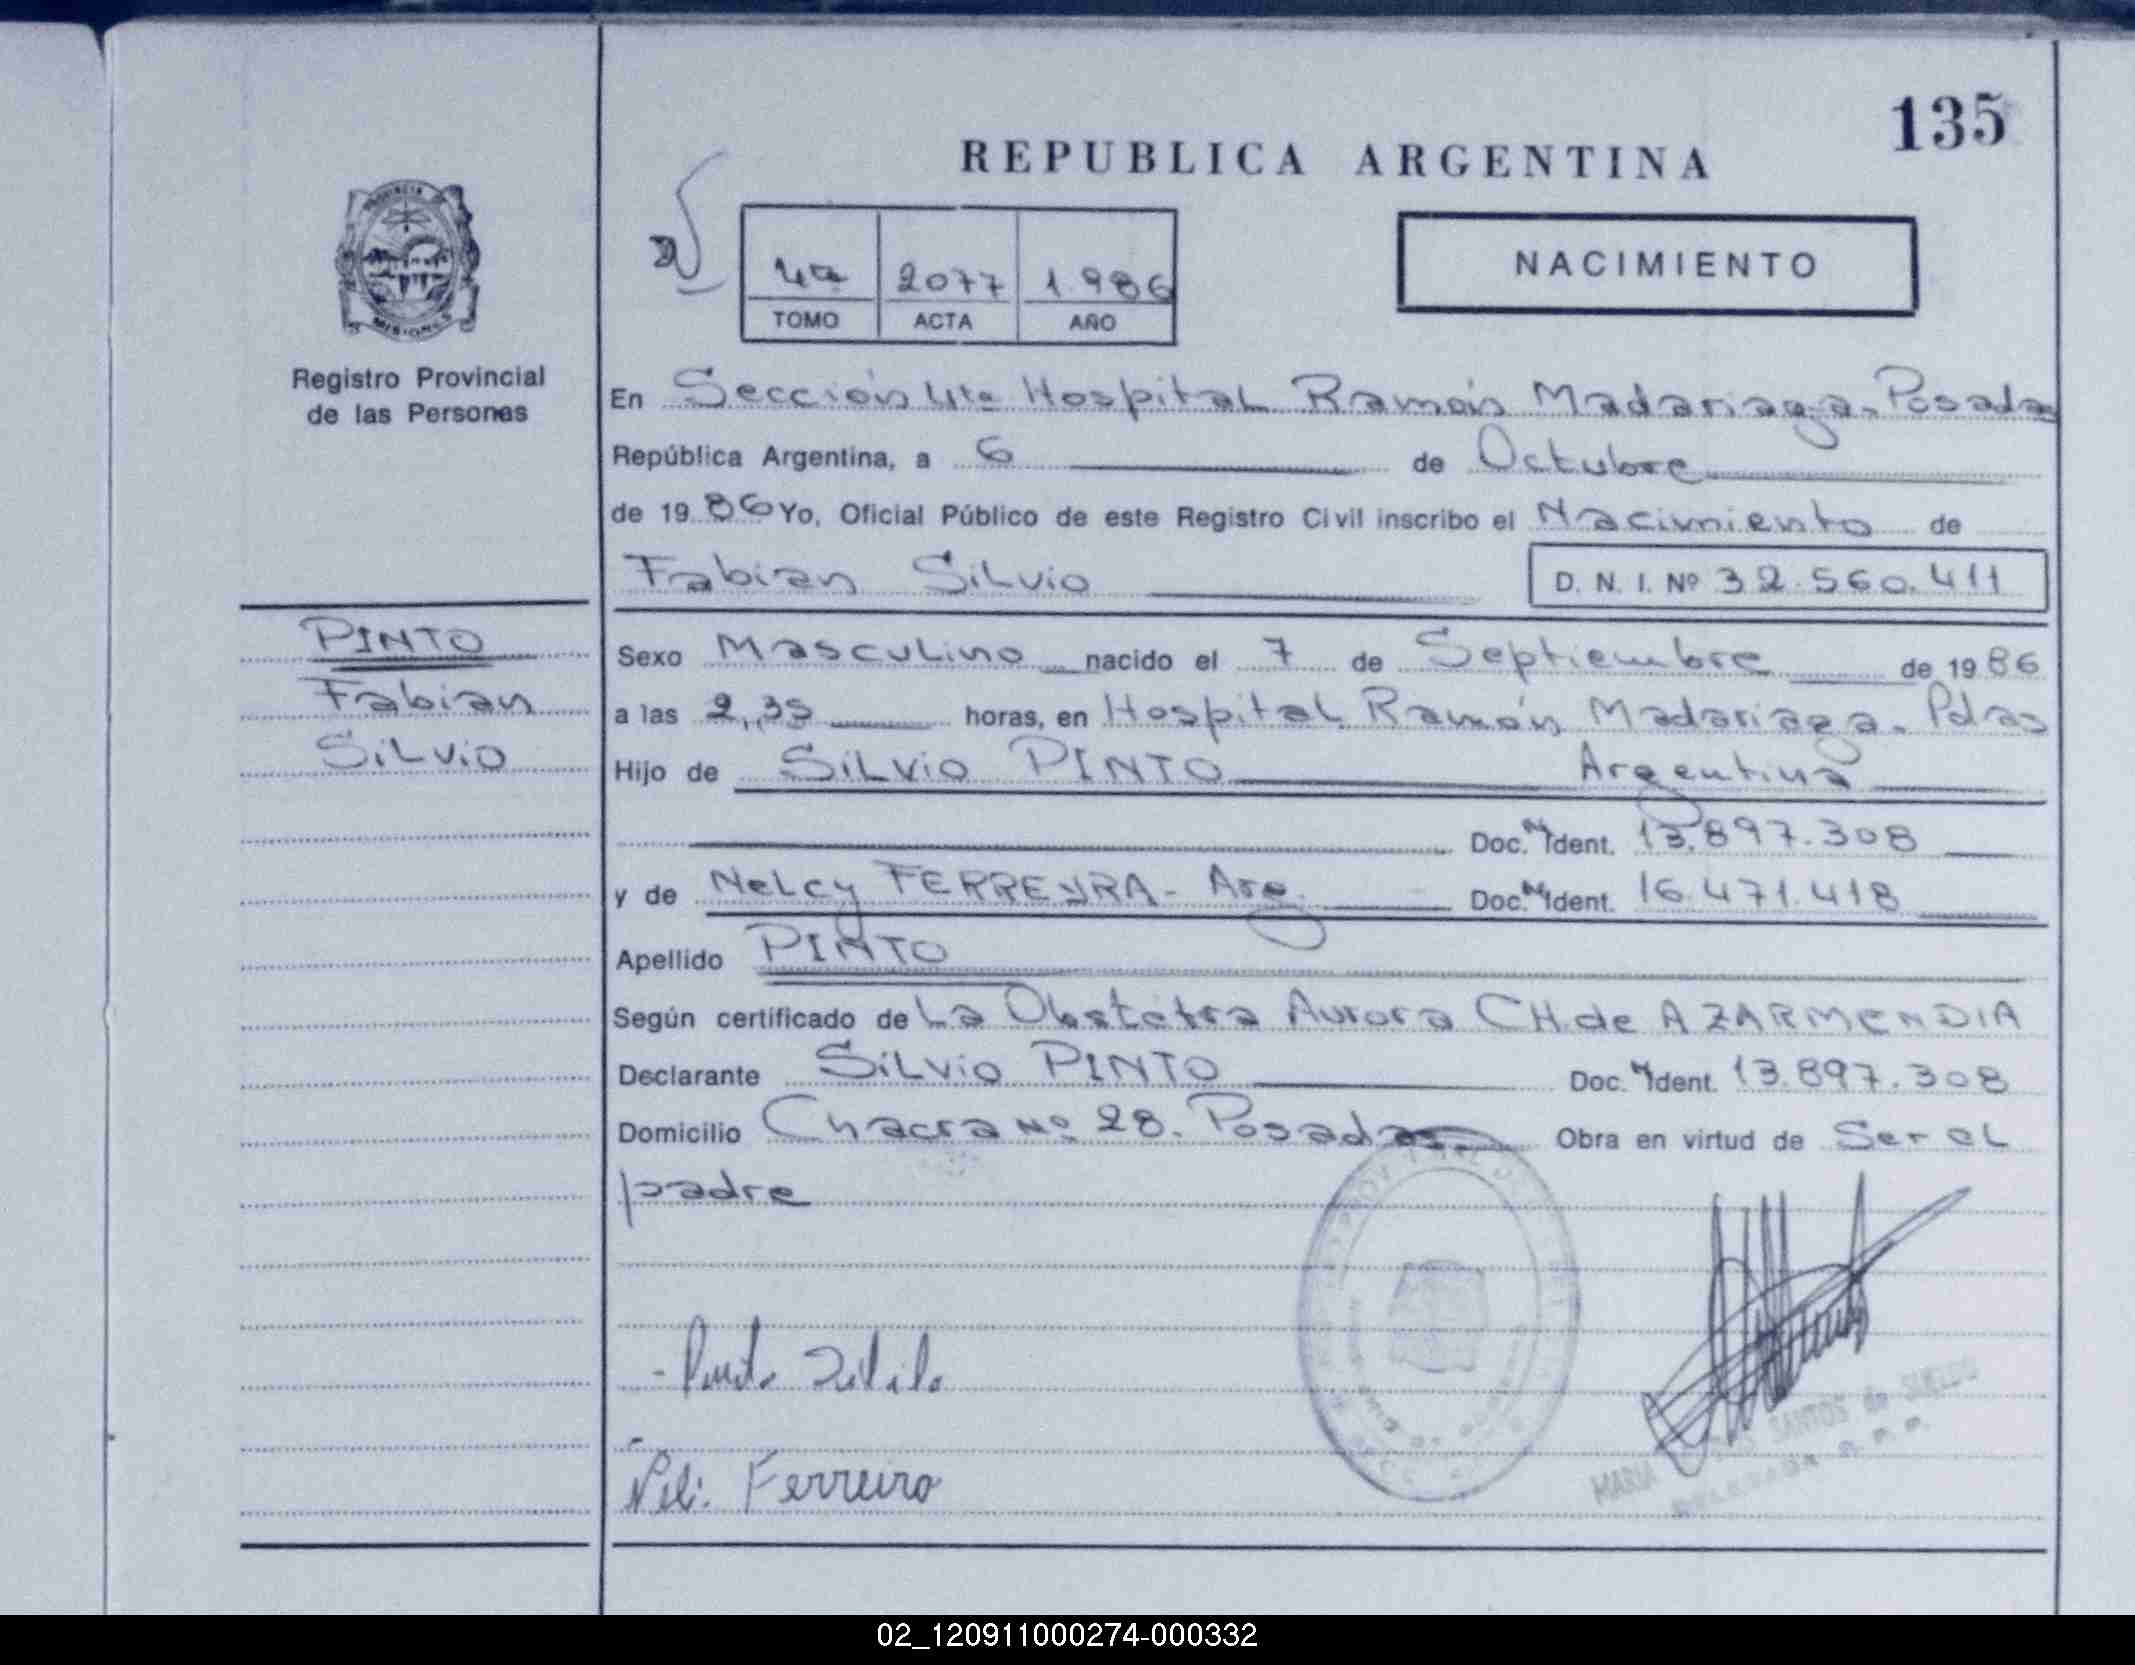 135
REPUBLICA ARGENTINA
PROVINCIA
MISIONES
Registro Provincial
de las Personas
4ta 2077 1.986
TOMO ACTA AÑO
NACIMIENTO
En Sección 4ta Hospital Ramón Madariaga. Posadas
República Argentina, a 6 de Octubre
de 1986 Yo, Oficial Público de este Registro Civil inscribo el Nacimiento de
Fabian Silvio D. N. I. Nº 32.560.411
PINTO
Fabian
Silvio
Sexo Masculino nacido el 7 de Septiembre de 1986
a las 2,,35 horas, en Hospital Ramón Madariaga. Pdas
Hijo de Silvio PINTO Argentina
Doc. Ident. 13.897.308
y de Nelcy FERREYRA - Arg. Doc. Ident. 16.471.418
Apellido PINTO
Según certificado de La Obstetra Aurora CH. de AZARMENDIA
Declarante Silvio PINTO Doc. Ident. 13.897.308
Domicilio Chacra Nº 28. Posadas Obra en virtud de Ser el
padre
Ferreiro
MARIA SANTOS de SUELDO
02_120911000274-000332